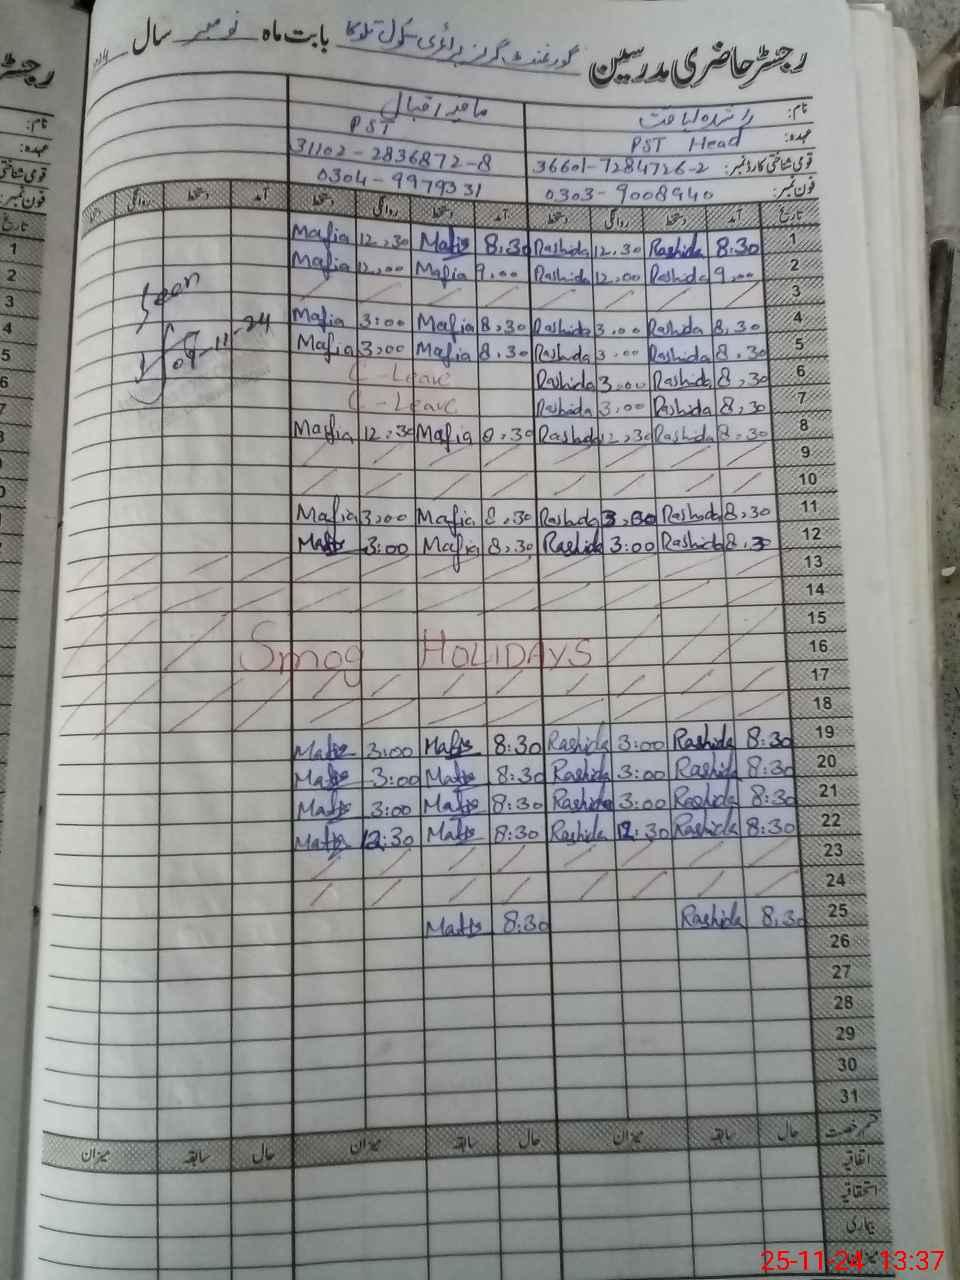 رجسٹر حاضری مدرسین گورنمنٹ گرلز پرائمری سکول بابت ماہ نومبر سال
نام: راشدہ لیاقت مافیہ اقبال
عہدہ: PST Head PST
قومی شناختی کارڈ نمبر: 36601-7284726-2 31102-2836872-8
فون نمبر: 0303-9008940 0304-9979331
تاریخ آمد دستخط روانگی دستخط آمد دستخط روانگی دستخط آمد دستخط روانگی دستخط
1 8:30 Rashida 12.30 Rashida 8.30 Mafia 12.30 Mafia
2 9.00 Rashida 12.00 Rashida 9.00 Mafia 12.00 Mafia
3
Seen
4 8.30 Rashida 3.00 Rashida 8.30 Mafia 3:00 Mafia
09-11-24
5 8.30 Rashida 3.00 Rashida 8.30 Mafia 3.00 Mafia
6 8,30 Rashida 3.00 Rashida C-Leave
7 8,30 Rashida 3.00 Rashida C-Leave
8 8,30 Rashida 12,30 Rashida 8.30 Mafia 12.30 Mafia
9
10
11 8,30 Rashida 3,00 Rashida 8,30 Mafia 3,00 Mafia
12 8.3 Rashida 3:00 Rashida 8,30 Mafia 3:00 Mafia
13
14
15
16 Smog HOLIDAYS
17
18
19 8:30 Rashida 3:00 Rashida 8:30 Mafia 3:00 Mafia
20 8:30 Rashida 3:00 Rashida 8:30 Mafia 3:00 Mafia
21 8:30 Rashida 3:00 Rashida 8:30 Mafia 3:00 Mafia
22 8:30 Rashida 12:30 Rashida 8:30 Mafia 12:30 Mafia
23
24
25 8:30 Rashida 8:30 Mafia
26
27
28
29
30
31
قسم رخصت حال سابقہ میزان حال سابقہ میزان حال سابقہ میزان
اتفاقیہ
استحقاقیہ
بیماری
میزان
25-11-24 13:37